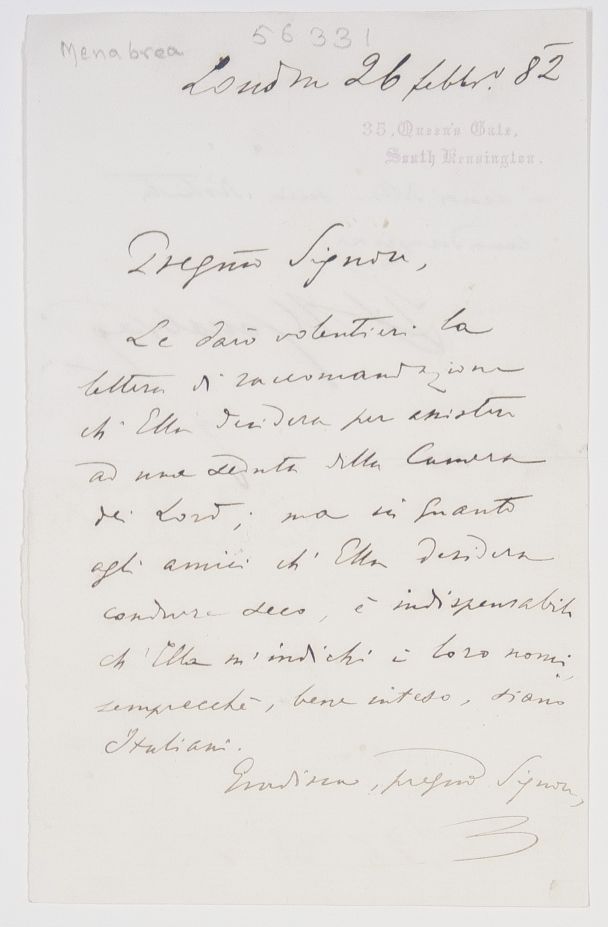 Menabrea
56331
Londra 26 febbr.° 82
35, Queen's Gate,
South Kensington.
Pregmo Signore,
Le darò volentieri la
lettera di raccomandazione
ch' Ella desidera per assistere
ad una seduta della Camera
dei Lord; ma in quanto
agli amici ch' Ella desidera
condurre seco, è indispensabile
ch' Ella m' indichi i loro nomi,
sempreché, bene inteso, siano
Italiani.
Gradisca, pregmo Signore,